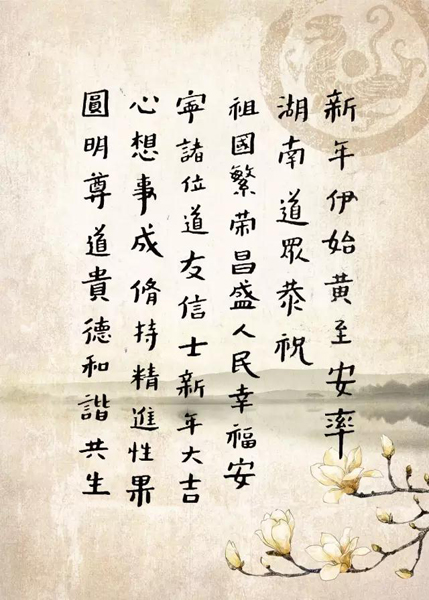 新年伊始黄至安率
湖南道眾恭祝
祖國繁荣昌盛人民幸福安
寧諸位道友信士新年大吉
心想事成脩持精進性果
圓明尊道貴德和諧共生